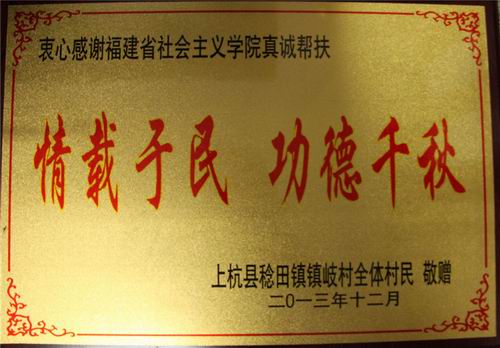 衷心感谢福建省社会主义学院真诚帮扶
情载于民 功德千秋
上杭县稔田镇镇岐村全体村民 敬赠
二0一三年十二月